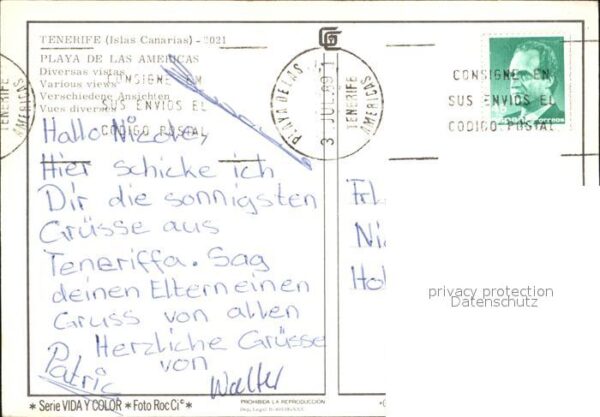 TENERIFE (Islas Canarias) - 2021
PLAYA DE LAS AMERICAS
Diversas vistas
Various views
Verschiedene Ansichten
Vues diverses
CONSIGNE EN
SUS ENVIOS EL
CODIGO POSTAL
PLAYA DE LAS
AMERICAS
TENERIFE
3 JUL 89
CONSIGNE EN
SUS ENVIOS EL
CODIGO POSTAL
correos
TENERIFE
AMERICAS
Hallo Nicole,
Hier schicke ich
Dir die sonnigsten
Grüsse aus
Teneriffa. Sag
deinen Eltern einen
Gruss von allen
Herzliche Grüsse
von
Patric
Walter
Frl
Ni
Hol
privacy protection
Datenschutz
* Serie VIDA Y COLOR * Foto Roc Ci*
PROHIBIDA LA REPRODUCCION